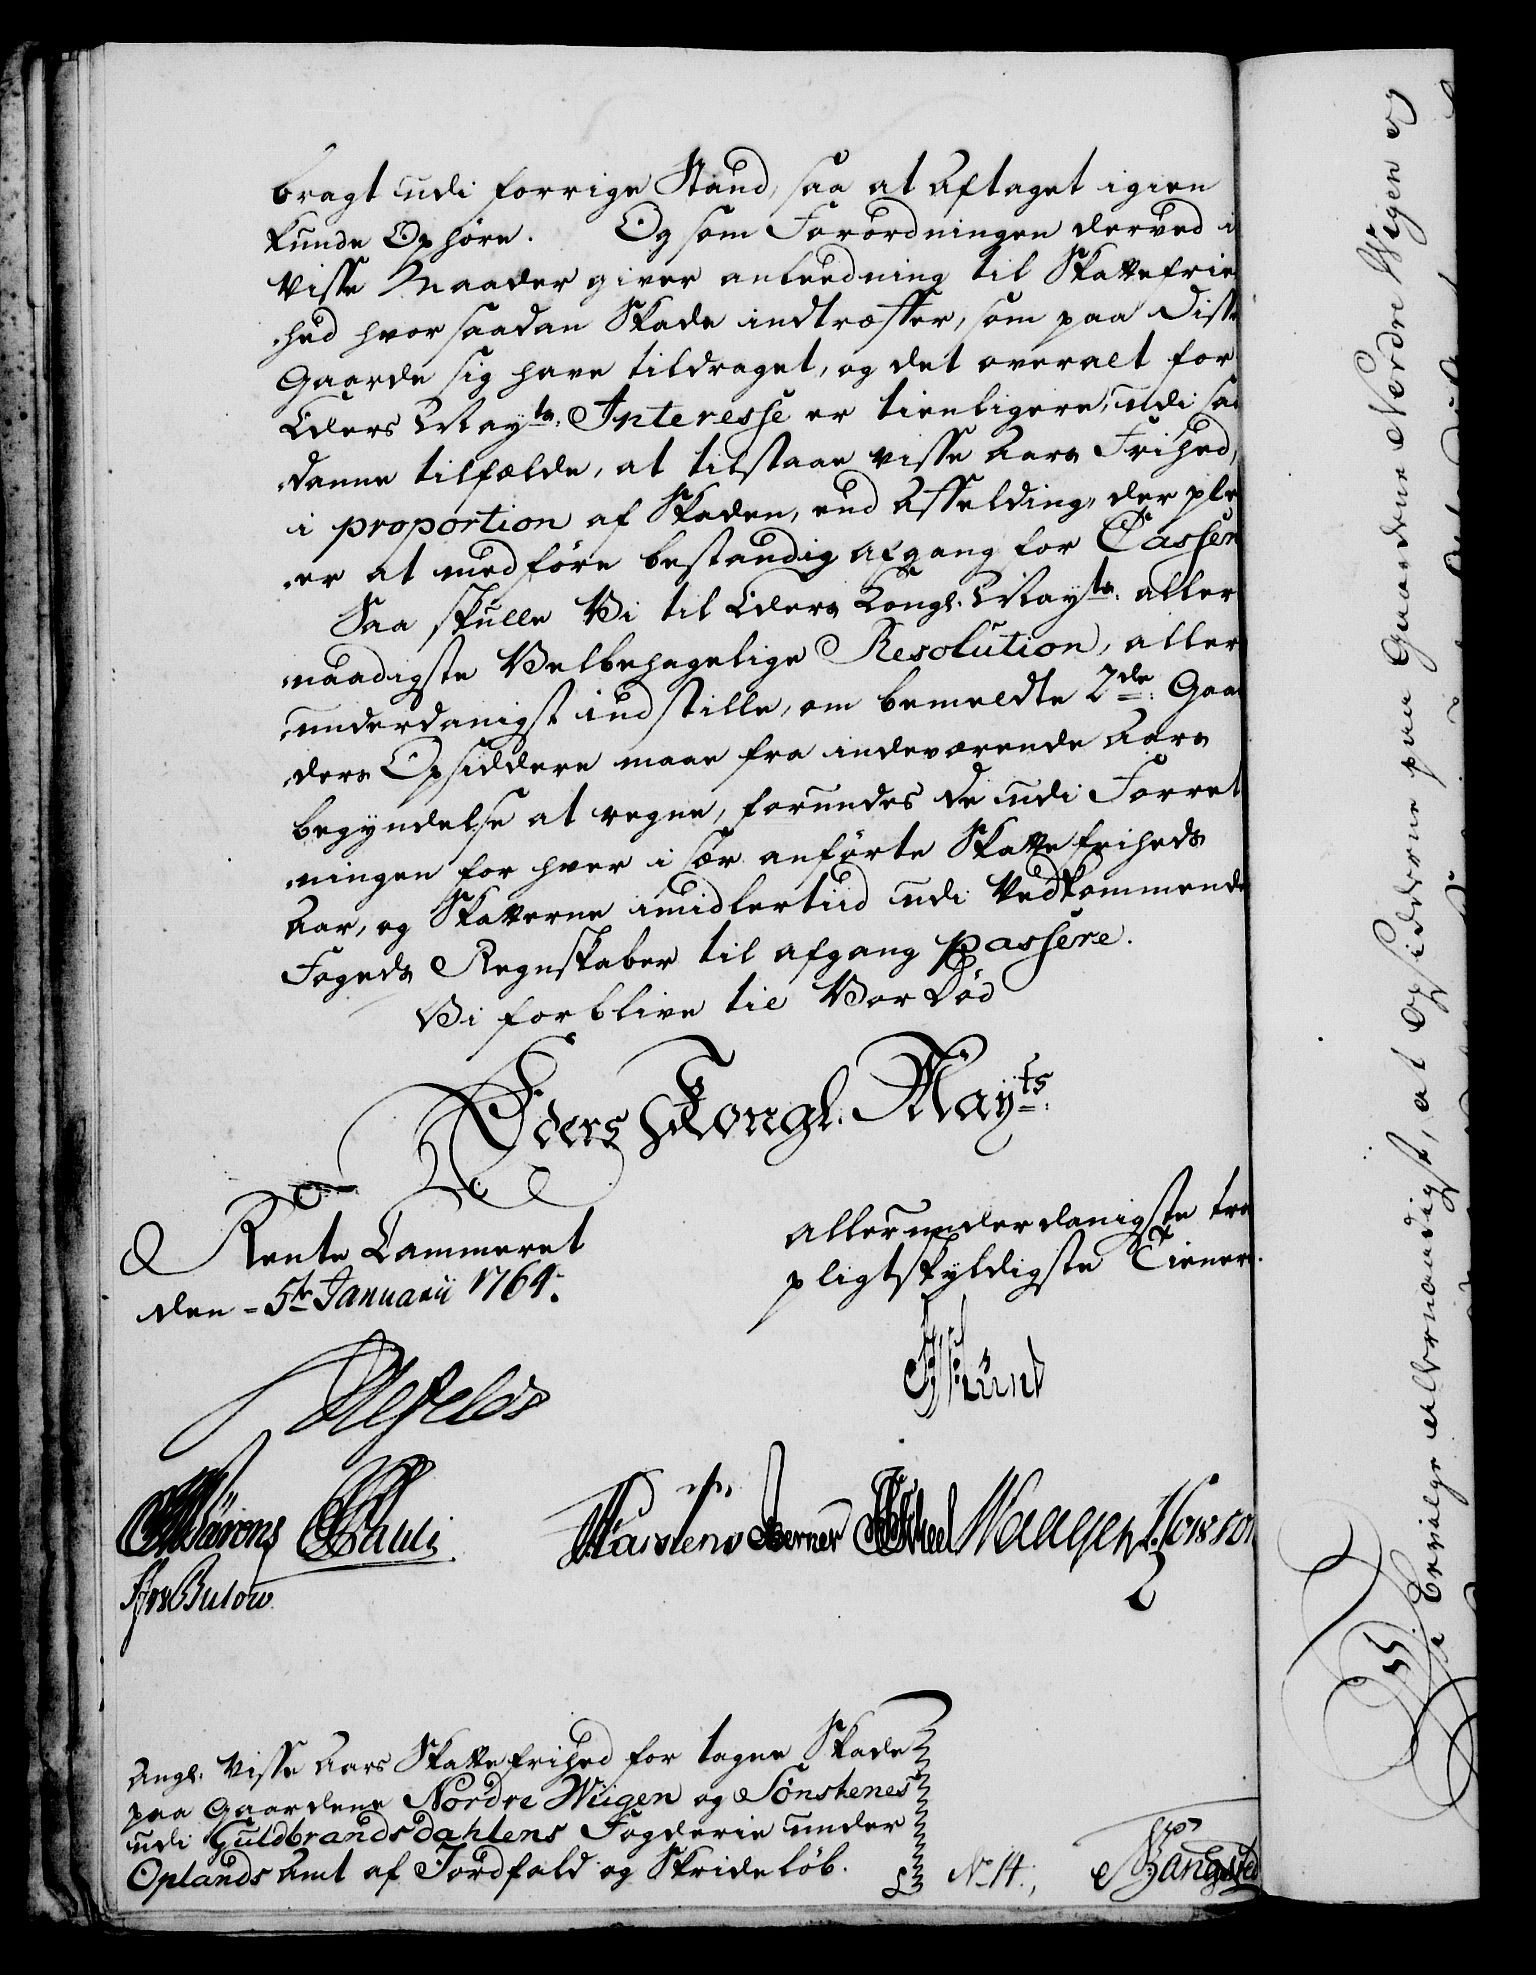 bragt udi forrige Stand, saa at Aftaget igien
kunde Ophöre. Og som Forordningen derved i
visse Maader giver anleedning til Skattefrie
hed hvor saadan Skade indtræffer, som paa disse
Gaarde sig have tildraget, og det overalt for
Eders Mayts: Interesse er tienligere, udi saa
danne tilfælde, at tilstaae visse Aars Frihed,
i proportion af Skaden, end Affelding, der plei
er at medföre bestandig afgang for Cassen
Saa skulle Vi til Eders Kongl. Mayts: aller
naadigste Velbehagelige Resolution, aller
underdanigst indstille, om bemeldte 2de: Gaar
ders Opsiddere maae fra indeværende Aars
begyndelse at regne, forundes de udi Forret
ningen for hver i sær anförte Skattefriheds
Aar, og Skatterne imidlertiid udi Vedkommende
Fogeds Regnskaber til afgang passere.
Vi forblive til Vor Död
Eders Kongl. Mayts:
Rente Cammeret
den 5te Januarii 1764.
allerunderdanigste tro
pligtskyldigste Tienere.
Ahlefeldt
Pauli
Karstens Berner Scheel Waagen
Bulow
Angl: visse Aars Skattefrihed for tagne Skade
paa Gaardene Nordre Wiigen og Sönstenes
udi Guldbrandsdahlens Fogderie under
Oplands Amt af Jordfald og Skrideløb.
No 14.
Bangsted
Vi Bevilge allernaadigst, at Opsidderne paa Gaardene Nordre Wigen og